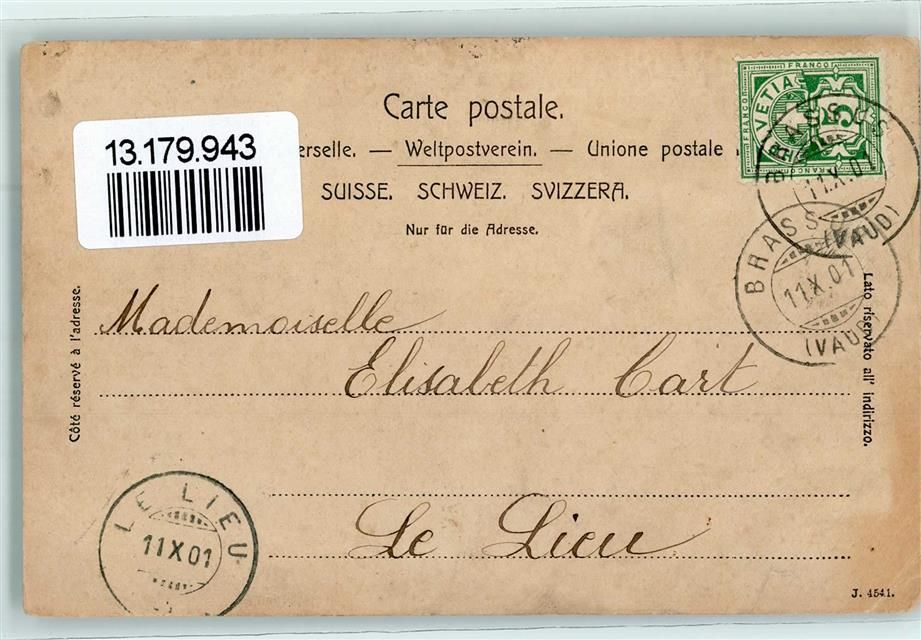 Carte postale.
13.179.943
erselle. — Weltpostverein. — Unione postale
SUISSE. SCHWEIZ. SVIZZERA.
Nur für die Adresse.
FRANCO
FRANCO
FRANCO
VETIA
5
BRASSUS
11.X.01
(VAUD)
BRASSUS
11.X.01
(VAUD)
Côté réservé à l'adresse.
Lato riservato all' indirizzo.
Mademoiselle
Elisabeth Cart
Le Lieu
LE LIEU
11 X 01
J. 4541.